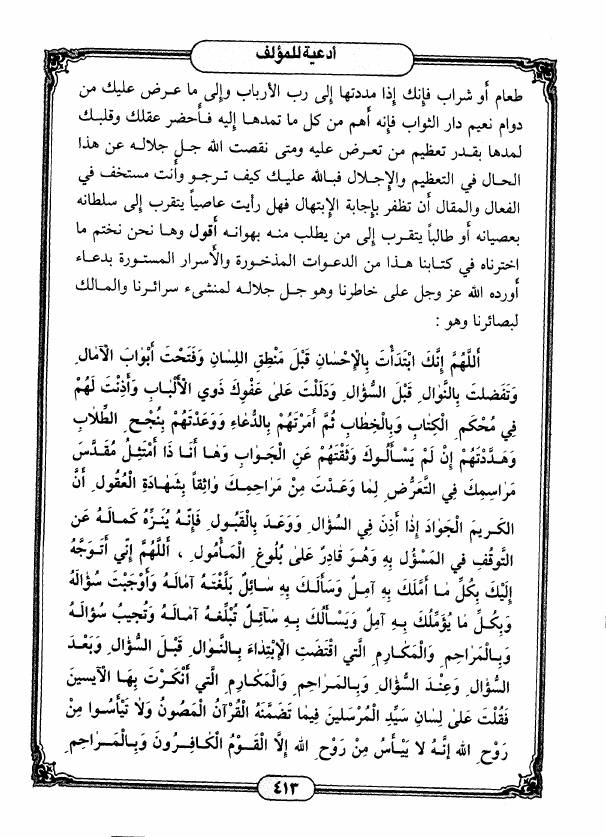 أدعية للمؤلف
طعام أو شراب فإنك إذا مددتها إلى رب الأرباب وإلى ما عرض عليك من
دوام نعيم دار الثواب فإنه أهم من كل ما تمدها إليه فأحضر عقلك وقلبك
لمدها بقدر تعظيم من تعرض عليه ومتى نقصت الله جل جلاله عن هذا
الحال في التعظيم والإجلال فبالله عليك كيف ترجو وأنت مستخف في
الفعال والمقال أن تظفر بإجابة الإبتهال فهل رأيت عاصياً يتقرب إلى سلطانه
بعصيانه أو طالباً يتقرب إلى من يطلب منه بهوانه أقول وها نحن نختم ما
اخترناه في كتابنا هذا من الدعوات المذخورة والأسرار المستورة بدعاء
أورده الله عز وجل على خاطرنا وهو جل جلاله لمنشىء سرائرنا والمالك
لبصائرنا وهو :
أَللَّهُمَّ إِنَّكَ ابْتَدَأْتَ بِالْإِحْسَانِ قَبْلَ مَنْطِقِ اللِسَانِ وَفَتَحْتَ أَبْوَابَ الآمَالِ
وَتَفَضلتَ بِالنَّوَالِ قَبْلَ السُّؤَالِ وَدَلَلْتَ عَلىٰ عَفْوِكَ ذَوِي الأَلْبَابِ وَأَذِنْتَ لَهُمْ
فِي مُحْكَمِ الْكِتَابِ وَبِالْخِطَابِ ثُمَّ أَمَرْتَهُمْ بِالدُّعَاءِ وَوَعَدْتَهُمْ بِنُجْحِ الطِّلَابِ
وَهَدَّدْتَهُمْ إِنْ لَمْ يَسْأَلُوكَ وَثَقْتَهُمْ عَنِ الْجَوَابِ وَهَا أَنَا ذَا أَمْتَثِلُ مُقَدَّسَ
مَرَاسِمِكَ فِي التَّعَرُّضِ لِمَا وَعَدْتَ مِنْ مَرَاحِمِكَ وَاثِقاً بِشَهَادَةِ الْعُقُولِ أَنَّ
الكريمَ الْجَوَادَ إِذَا أَذِنَ فِي السُّؤَالِ وَوَعَدَ بِالْقَبُولِ فَإِنَّهُ يُنَزَّهُ كَمَالَهُ عَنِ
التَّوَقفِ فِي المَسْؤُلِ بِهِ وَهُوَ قَادِرٌ عَلىٰ بُلُوغِ الْمَأْمُولِ ، أَللَّهُمَّ إِنِّي أَتَوَجَّهُ
إِلَيْكَ بِكُلِّ مَا أَمَّلَكَ بِهِ آمِلٌ وَسَأَلَكَ بِهِ سَائِلٌ بَلَّغْتَهُ آمَالَهُ وَأَوْجَبْتَ سُؤَالَهُ
وَبِكُلِّ مَا يُؤَمِّلُكَ بِهِ آمِلٌ وَيَسْأَلُكَ بِهِ سَآئِلٌ تُبْلِّغهُ آمَالَهُ وَتُجِيبُ سُؤَالَهُ
وَبِالْمَرَاحِمِ وَالْمَكَارِمِ الَّتِي اقْتَضَتِ الْإِبْتِدَاءَ بِالنَّوَالِ قَبْلَ السُّؤَالِ وَبَعْدَ
السُّؤَالِ وَعِنْدَ السُّؤَالِ وَبِالمَرَاحِمِ وَالْمَكَارِمِ الَّتِي أَنْكَرْتَ بِهَا الآيسين
فَقُلْتَ عَلىٰ لِسَانِ سَيِّدِ الْمُرْسَلينَ فِيمَا تَضَمَّنَهُ الْقُرْآنُ الْمَصُونُ وَلاَ تَيْأَسُوا مِنْ
رَوْحِ الله إِنَّهُ لا يَيْأَسُ مِنْ رَوْحِ الله إِلَّا الْقَوْمُ الْكَافِرُونَ وَبِالْمَرَاحِمِ
٤١٣